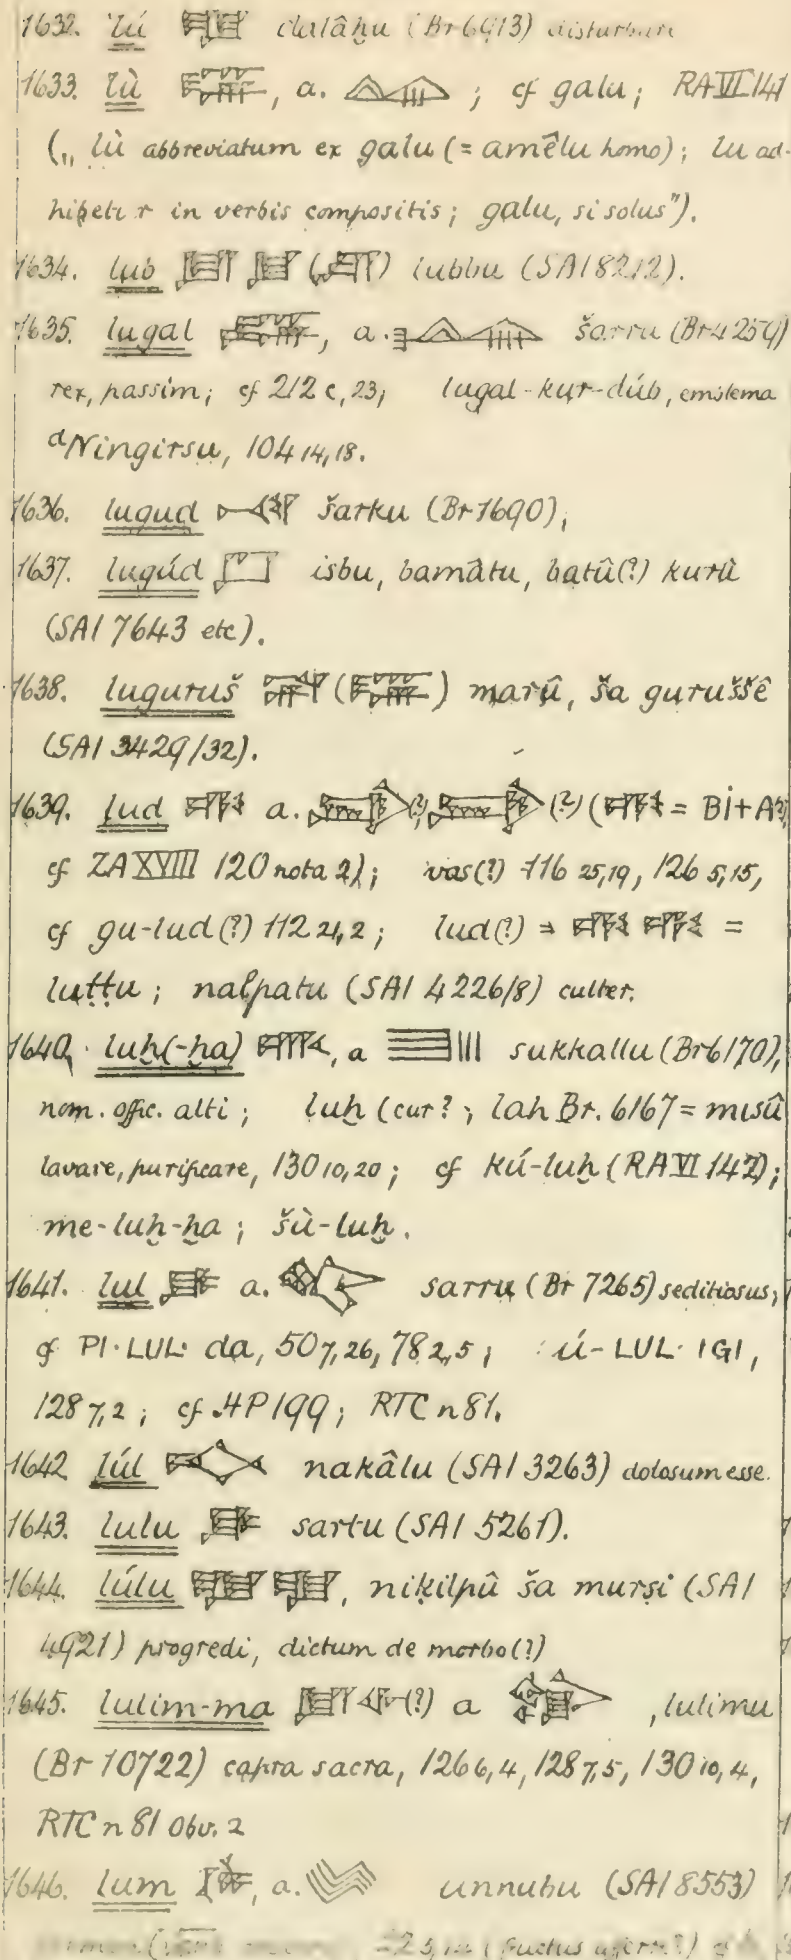 1632. lú dalâḫu (Br 6913) disturbare
1633. lù , a. ; cf galu; RA VI 141
(„ lù abbreviatum ex galu (= amêlu homo); lu ad-
hibetur in verbis compositis; galu, si solus").
1634. lub ( ) lubbu (SAI 8212).
1635. lugal , a. šarru (Br 4259)
rex, passim; cf 2/2 c, 23; lugal-kur-dúb, emblema
ᵈNingirsu, 104 14,18.
1636. lugud šarku (Br 1690),
1637. lugúd isbu, bamâtu, batû(?) kurû
(SAI 7643 etc).
1638. luguruš ( ) marû, ša guruššê
(SAI 3429/32).
1639. lud a. (?), (?) ( = BI+A
cf ZA XVIII 120 nota 2); vas(?) 116 25,19, 126 5,15,
cf gu-lud(?) 112 21,2; lud(?) = =
luṭṭu; nalpatu (SAI 4226/8) culter.
1640. luḫ(-ḫa) , a sukkallu (Br 6170),
nom. offic. alti; luḫ (cur?; lah Br. 6167 = misû
lavare, purificare, 130 10,20; cf kú-luḫ (RA VI 142);
me-luḫ-ḫa; šù-luḫ.
1641. lul a. sarru (Br 7265) seditiosus;
cf PI·LUL· da, 50 7,26, 78 2,5; ú-LUL· IGI,
128 7,2; cf HP 199; RTC n 81.
1642 lúl nakâlu (SAI 3263) dolosum esse.
1643. lulu sartu (SAI 5261).
1644. lúlu , niḳilpû ša murṣi (SAI
4921) progredi, dictum de morbo(?)
1645. lulim-ma (?) a , lulimu
(Br 10722) capra sacra, 126 6,4, 128 7,5, 130 10,4,
RTC n 81 Obv. 2
1646. lum , a. unnubu (SAI 8553)